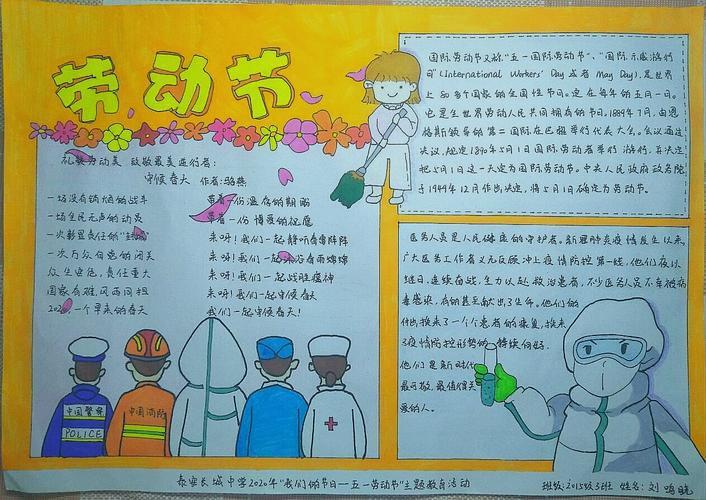 劳动节
礼赞劳动美 致敬最美逆行者:
守候春天 作者:骆燕
一场没有硝烟的战斗
一场全民无声的动员
一次彰显责任的"封城"
一次万众自觉的闭关
众生逆危,责任重大
国家有难,风雨同担
2020,一个早来的春天
带着一份温存的期盼
带着一份博爱的祝愿
来呀!我们一起静听春雷阵阵
来呀!我们一起沐浴春雨绵绵
来呀!我们一起战胜瘟神
来呀!我们一起守候春天
我们一起守候春天!
国际劳动节又称"五一国际劳动节"、"国际示威游行
日"(International Workers' Day 或者 May Day),是世界
上80多个国家的全国性节日。定在每年的五月一日。
它是全世界劳动人民共同拥有的节日。1889年7月,由恩
格斯领导的第二国际在巴黎举行代表大会。会议通过
决议,规定1890年5月1日国际劳动者举行游行,并决定
把5月1日这一天定为国际劳动节。中央人民政府政务院
于1949年12月作出决定,将5月1日确定为劳动节。
医务人员是人民健康的守护者。新冠肺炎疫情发生以来,
广大医务工作者义无反顾冲上疫情防控第一线,他们夜以
继日,连续奋战,全力以赴救治患者,不少医务人员不幸被病
毒感染,有的甚至献出了生命。他们的
付出换来了一个个患者的康复,换来
了疫情防控形势的持续向好。
他们是新时代
最可敬、最值得关
爱的人。
中国警察
POLICE
中国消防
泰安长城中学2020年"我们的节日—五一劳动节"主题教育活动
班级:2015级3班 姓名:刘鸣晓